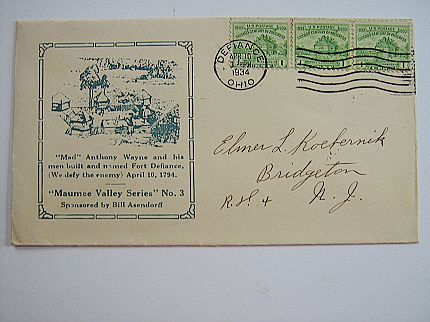 U.S. POSTAGE U.S. POSTAGE U.S. POSTAGE
1 1 1
DEFIANCE
APR 10
1934
OHIO
"Mad" Anthony Wayne and his
men built and named Fort Defiance,
(We defy the enemy) April 10, 1794.
"Maumee Valley Series" No. 3
Sponsored by Bill Asendorff
Elmer L. Koebernik
Bridgeton
R.H. 4 N. J.